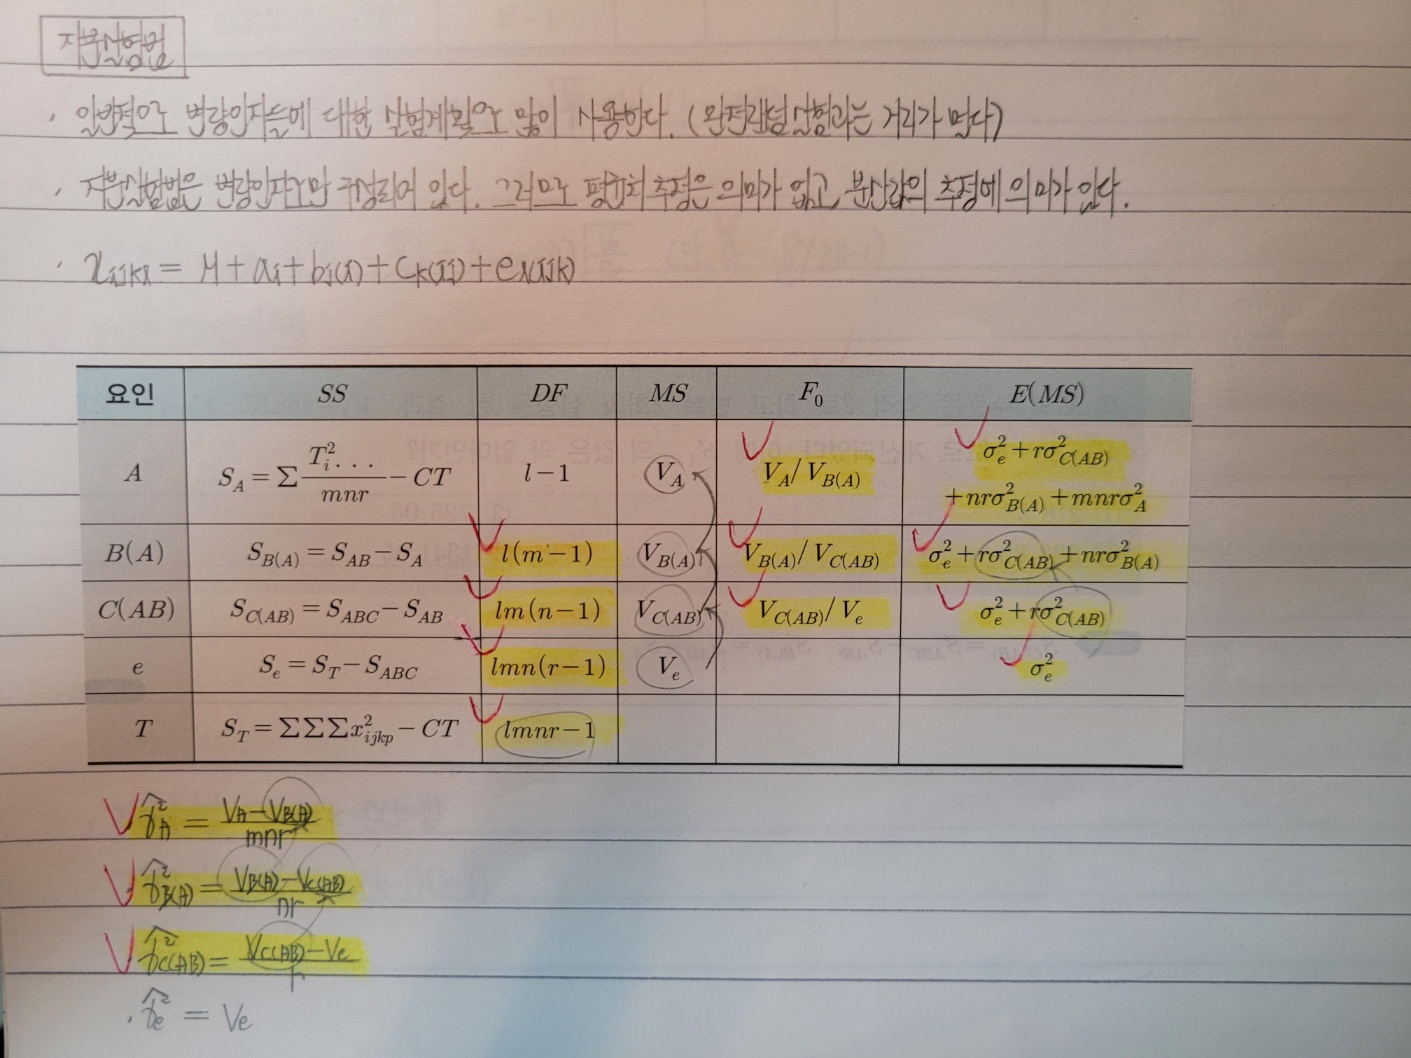 지분실험법
· 일반적으로 변량인자들에 대한 실험계획으로 많이 사용한다. (완전랜덤실험과는 거리가 멀다)
· 지분실험법은 변량인자로만 구성되어 있다. 그러므로 평균치 추정은 의미가 없고 분산값의 추정에 의미가 있다.
· x_{ijkl} = μ + a_i + b_{j(i)} + c_{k(ij)} + e_{l(ijk)}
요인 SS DF MS F₀ E(MS)
A S_A = Σ T²_{i···}/mnr − CT l−1 V_A V_A/V_{B(A)} σ²_e + rσ²_{C(AB)} + nrσ²_{B(A)} + mnrσ²_A
B(A) S_{B(A)} = S_{AB} − S_A l(m−1) V_{B(A)} V_{B(A)}/V_{C(AB)} σ²_e + rσ²_{C(AB)} + nrσ²_{B(A)}
C(AB) S_{C(AB)} = S_{ABC} − S_{AB} lm(n−1) V_{C(AB)} V_{C(AB)}/V_e σ²_e + rσ²_{C(AB)}
e S_e = S_T − S_{ABC} lmn(r−1) V_e σ²_e
T S_T = ΣΣΣx²_{ijkp} − CT lmnr−1
σ̂²_A = (V_A − V_{B(A)})/mnr
σ̂²_{B(A)} = (V_{B(A)} − V_{C(AB)})/nr
σ̂²_{C(AB)} = (V_{C(AB)} − V_e)/r
· σ̂²_e = V_e